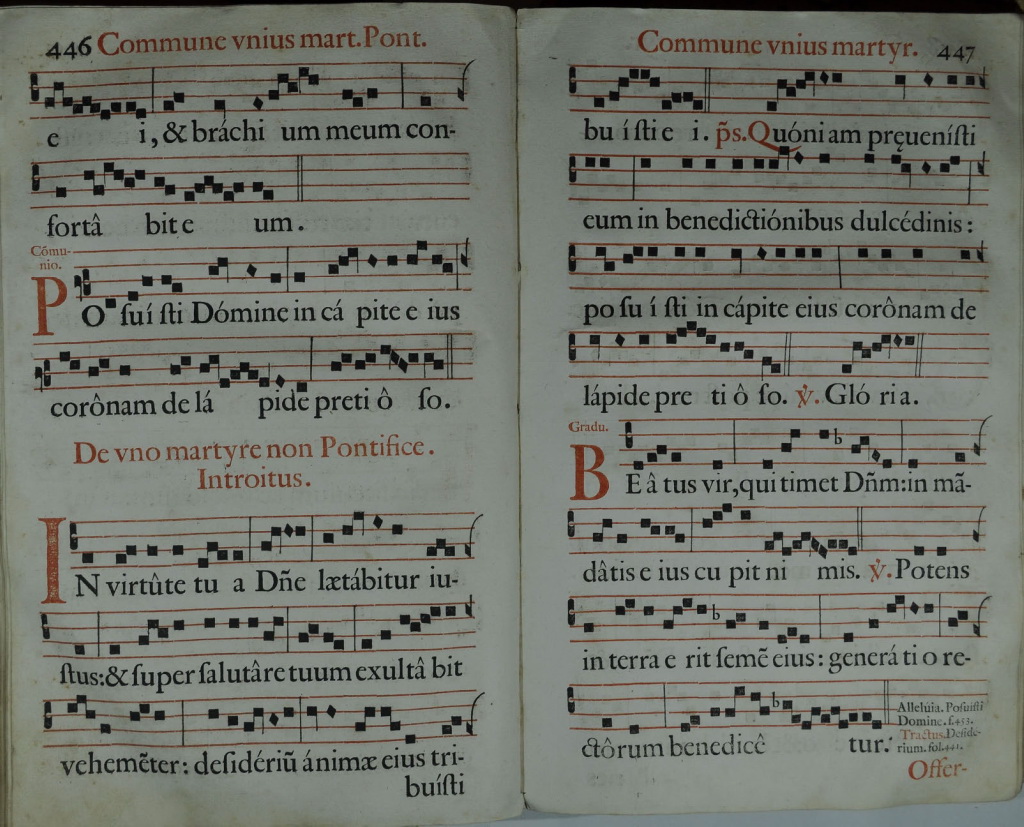 446 Commune vnius mart. Pont.
e i, & bráchi um meum con-
fortâ bit e um.
Cómu-
nio.
PO su í sti Dómine in cá pite e ius
corônam de lá pide preti ô so.
De vno martyre non Pontifice.
Introitus.
IN virtûte tu a Dñe lætábitur iu-
stus: & super salutâre tuum exultâ bit
vehemẽter: desidériũ ánimæ eius tri-
buísti
Commune vnius martyr. 447
bu ísti e i. p̃s. Quóni am pręuenísti
eum in benedictiónibus dulcédinis:
po su í sti in cápite eius corônam de
lápide pre ti ô so. ℣. Gló ri a.
Gradu.
BE â tus vir, qui timet Dñm: in mã-
dâtis e ius cu pit ni mis. ℣. Potens
in terra e rit semẽ eius: generá ti o re-
ctôrum benedicê tur.
Allelúia. Posuisti
Domine. f.453.
Tractus. Deside-
rium. fol.441.
Offer-